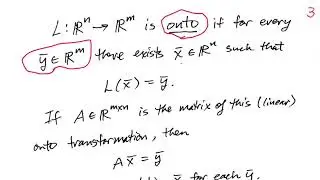 3
L: ℝⁿ → ℝᵐ is onto if for every
ȳ ∈ ℝᵐ there exists x̄ ∈ ℝⁿ such that
L(x̄) = ȳ.
If A ∈ ℝᵐˣⁿ is the matrix of this (linear)
onto transformation, then
A x̄ = ȳ
x̄ for each ȳ.